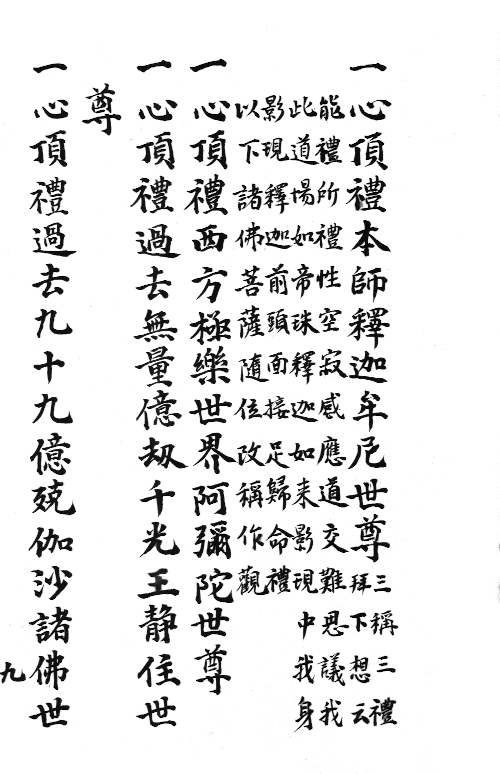 一心頂禮本師釋迦牟尼世尊三稱三禮
拜下想云
能禮所禮性空寂感應道交難思議我
此道場如帝珠釋迦如来影現中我身
影現釋迦前頭面接足歸命禮
以下諸佛菩薩隨位改稱作觀
一心頂禮西方極樂世界阿彌陀世尊
一心頂禮過去無量億劫千光王静住世
尊
一心頂禮過去九十九億殑伽沙諸佛世
九